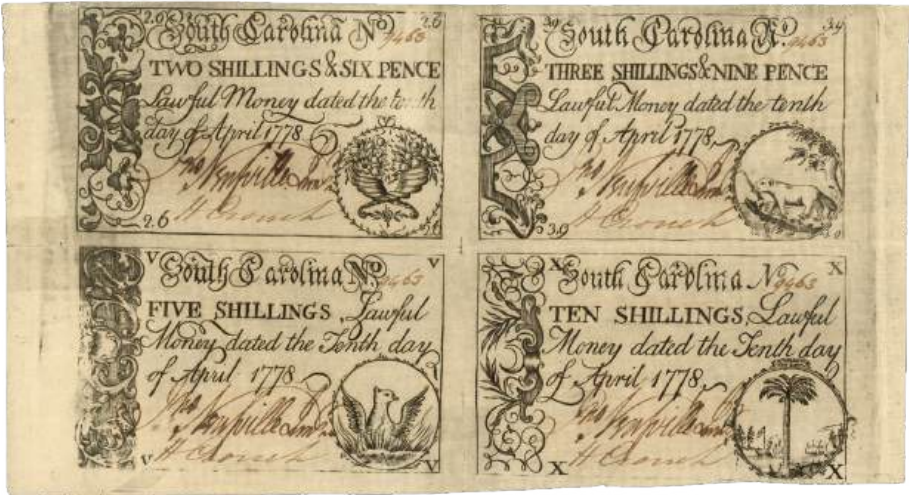 2.6 2.6
South Carolina No. 9463
TWO SHILLINGS & SIX PENCE
Lawful Money dated the tenth
day of April 1778
Jno Neufville Junr.
H Crouch
2.6 2.6
39 39
South Carolina No. 9463
THREE SHILLINGS & NINE PENCE
Lawful Money dated the tenth
day of April 1778
Jno Neufville Junr.
H Crouch
39 39
V V
South Carolina No. 9463
FIVE SHILLINGS, Lawful
Money dated the Tenth day
of April 1778
Jno Neufville Junr.
H Crouch
V V
X X
South Carolina No. 9463
TEN SHILLINGS, Lawful
Money dated the Tenth day
of April 1778
Jno Neufville Junr.
H Crouch
X X